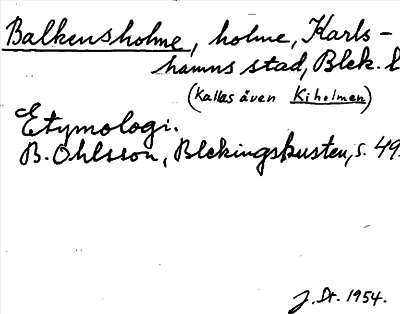 Balkensholme, holme, Karls-
hamns stad, Blek. l
(Kallas även Kiholmen)
Etymologi.
B. Ohlsson, Blekingskusten, s. 49.
J. Dt. 1954.